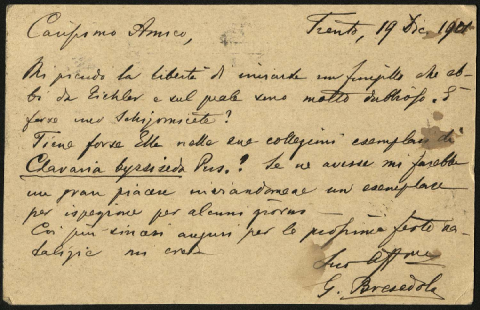 Carissimo Amico, Trento, 19 Dic. 1901
Mi prendo la libertà di inviarle un funghillo che eb-
bi da Eichler e sul quale sono molto dubbioso. È
forse uno Schizornicete?
Tiene forse Ella nelle sue collezioni esemplari di
Clavaria byssiseda Pers.? Se ne avesse mi farebbe
un gran piacere inviandomene un esemplare
per ispezione per alcuni giorni —
Coi più sinceri auguri per le prossime feste na-
talizie mi creda
Suo Aff.mo
G. Bresadola